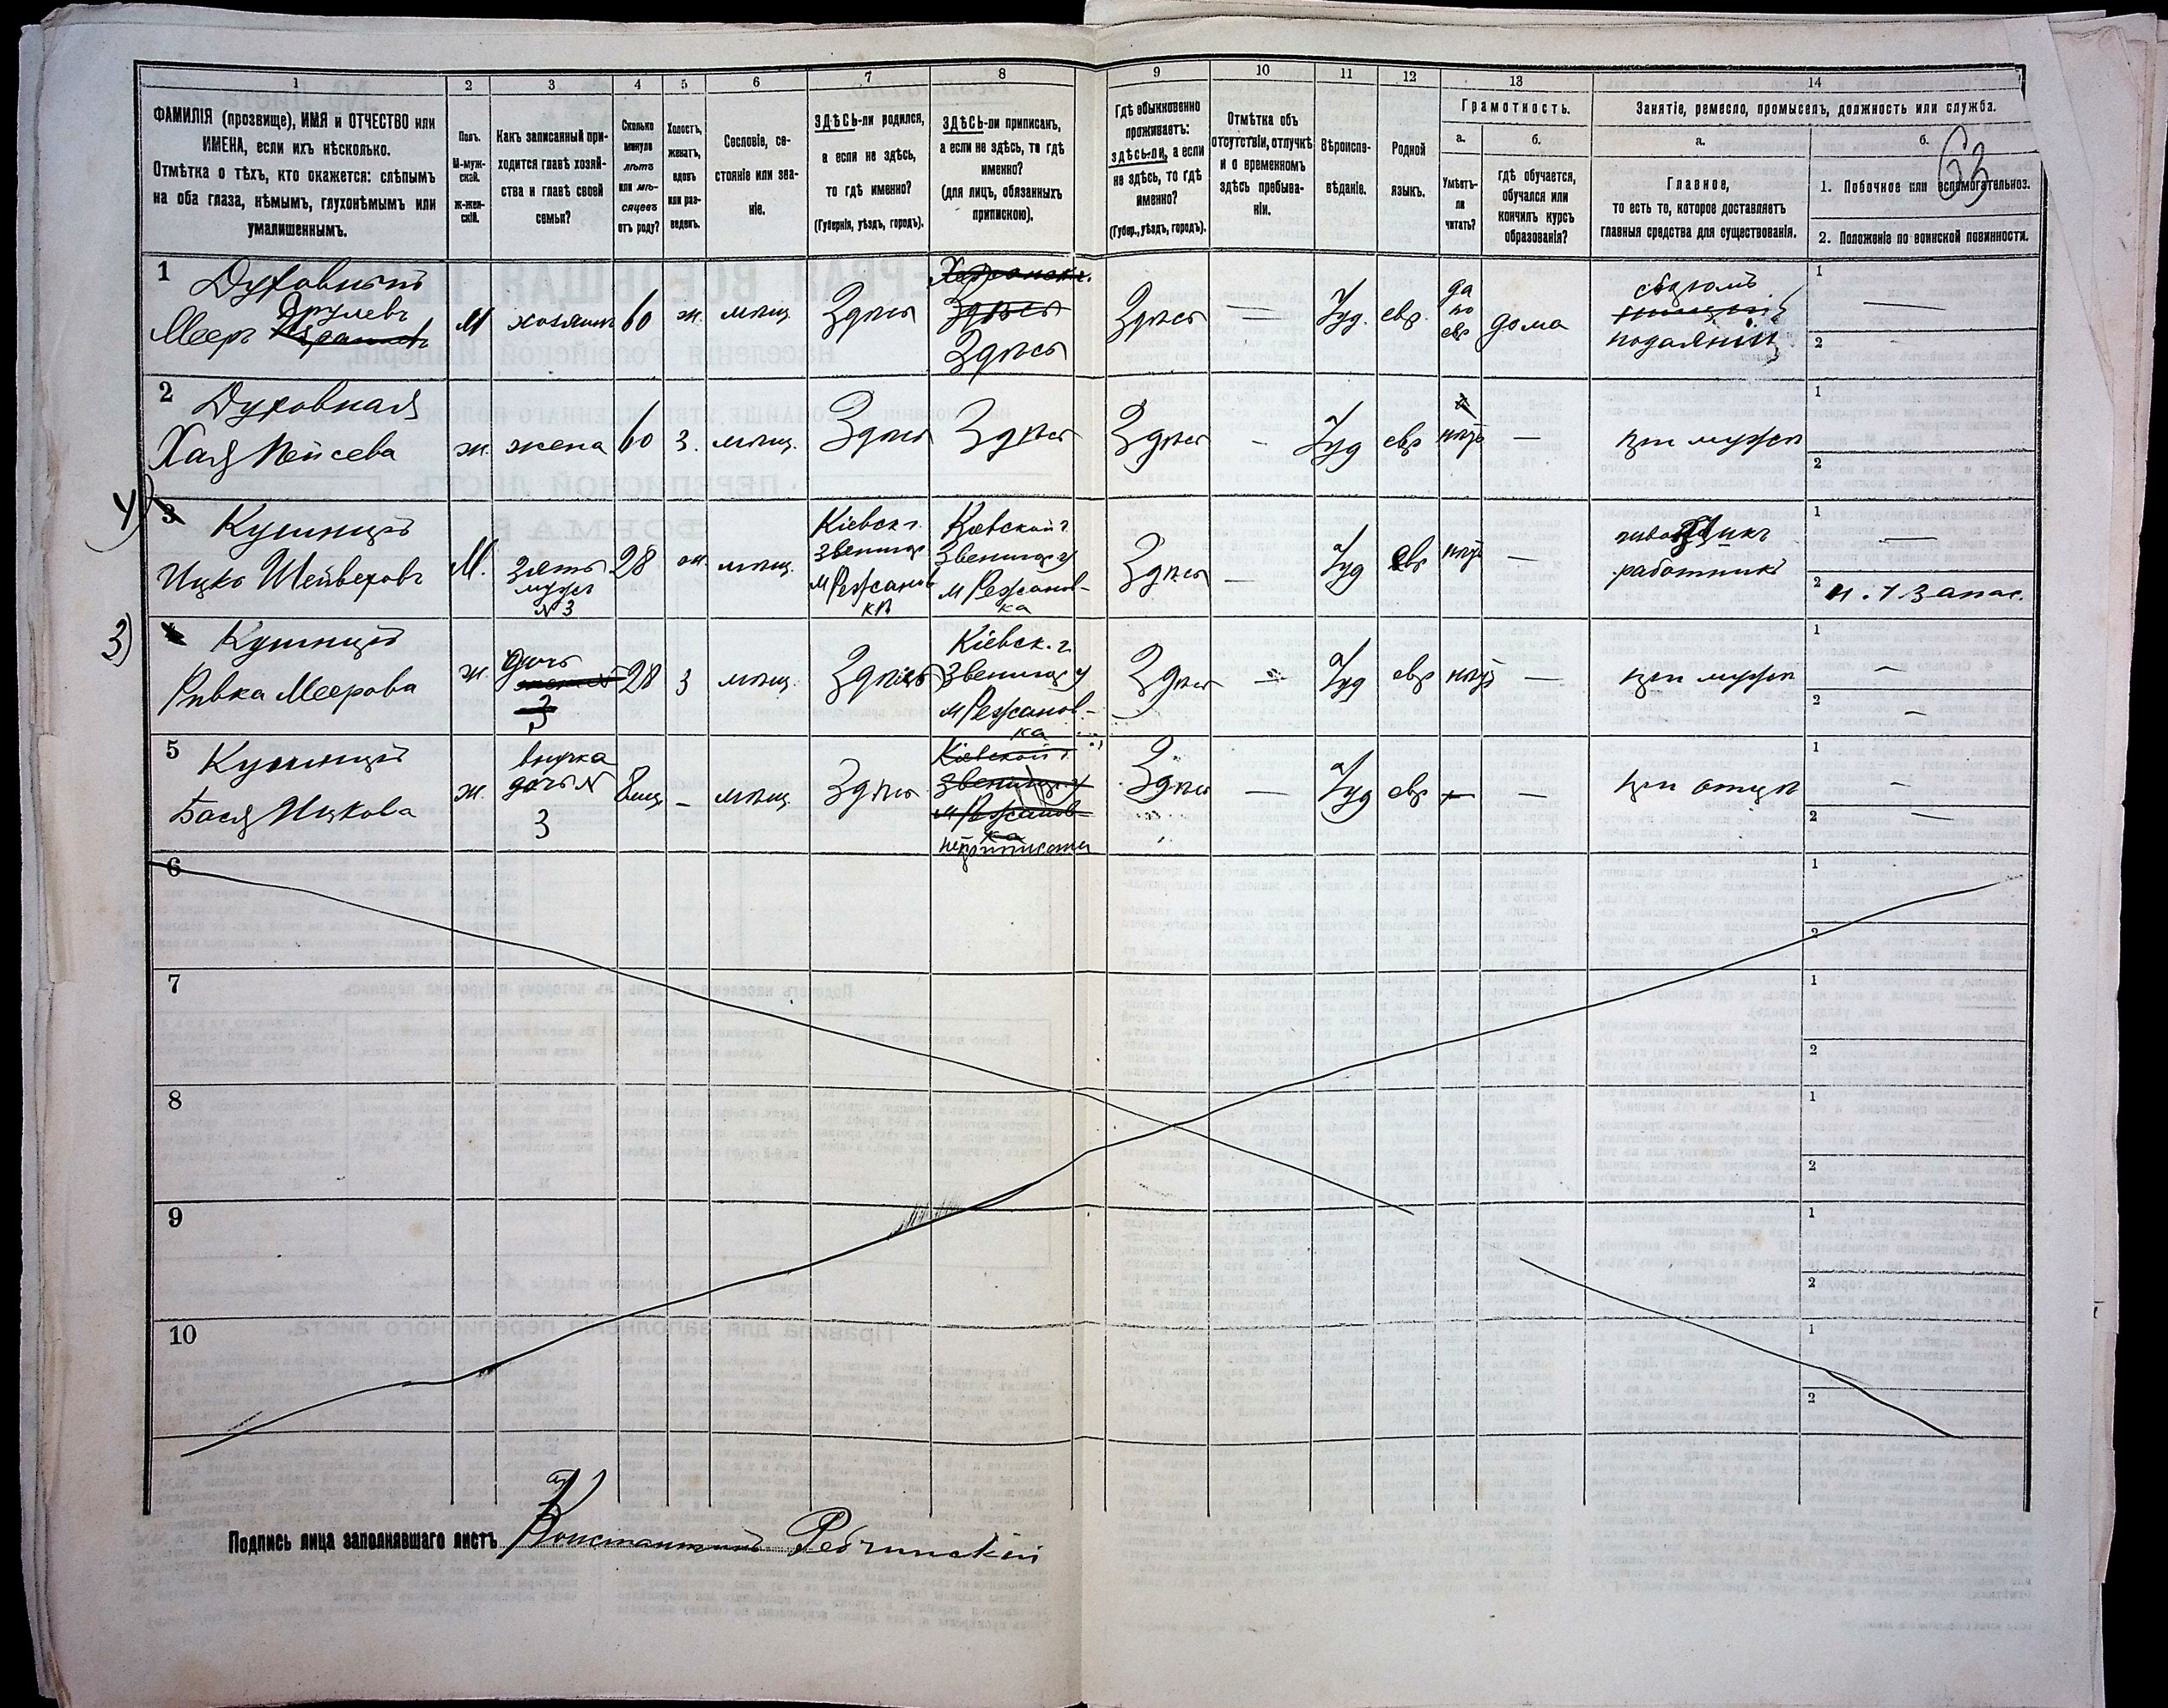 1
2
3
4
5
6
7
8
9
10
11
12
13
14
ФАМИЛІЯ (прозвище), ИМЯ и ОТЧЕСТВО или
ИМЕНА, если ихъ нѣсколько.
Отмѣтка о тѣхъ, кто окажется: слѣпымъ
на оба глаза, нѣмымъ, глухонѣмымъ или
умалишеннымъ.
Полъ.
М-муж-
ской.
Ж-жен-
скій.
Какъ записанный при-
ходится главѣ хозяй-
ства и главѣ своей
семьи?
Сколько
минуло
лѣтъ
или мѣ-
сяцевъ
отъ роду?
Холостъ,
женатъ,
вдовъ
или раз-
веденъ.
Сословіе, со-
стояніе или зва-
ніе.
ЗДѢСЬ-ли родился,
а если не здѣсь,
то гдѣ именно?
(Губернія, уѣздъ, городъ).
ЗДѢСЬ-ли приписанъ,
а если не здѣсь, то гдѣ
именно?
(для лицъ, обязанныхъ
припискою).
Гдѣ обыкновенно
проживаетъ:
здѣсь-ли, а если
не здѣсь, то гдѣ
именно?
(Губер., уѣздъ, городъ).
Отмѣтка объ
отсутствіи, отлучкѣ
и о временномъ
здѣсь пребыва-
ніи.
Вѣроиспо-
вѣданіе.
Родной
языкъ.
Грамотность.
а.
Умѣетъ-
ли
читать?
б.
гдѣ обучается,
обучался или
кончилъ курсъ
образованія?
Занятіе, ремесло, промыселъ, должность или служба.
а.
Главное,
то есть то, которое доставляетъ
главныя средства для существованія.
б.
63
1. Побочное или вспомогательное.
2. Положеніе по воинской повинности.
1
Духовный
Срулевъ
Мееръ
М
хозяинъ
60
ж.
мѣщ.
Здѣсь
Здѣсь
Здѣсь
Здѣсь
Іуд.
евр.
да
по
евр
дома
подаяній
1
2
2
Духовная
Хая Пейсева
ж.
жена
60
З.
мѣщ.
Здѣсь
Здѣсь
Здѣсь
Іуд
евр
нѣтъ
при мужѣ
1
2
4)
3
Кушниръ
Ицко
М.
зять
мужъ
N 3
28
ж.
мѣщ.
Кіевск г.
Звениг
м Режанов
ка
Кіевской г
Звениг у
м Режанов-
ка
Здѣсь
Іуд
евр
нѣтъ
работникъ
1
2
3)
Кушниръ
Ривка Меерова
ж.
дочь
3
28
З
мѣщ.
Здѣсь
Кіевск. г.
Звениг у
м Режанов-
ка
Здѣсь
Іуд
евр
нѣтъ
при мужѣ
1
2
5
Кушниръ
Бася Ицкова
ж.
внучка
дочь N
3
8 мц
мѣщ.
Здѣсь
Кіевской г.
Звениг у
м Режанов-
ка
не приписана
Здѣсь
Іуд
евр
при отцѣ
1
2
6
1
2
7
1
2
8
1
2
9
1
2
10
1
2
Подпись лица заполнявшаго листъ Константинъ